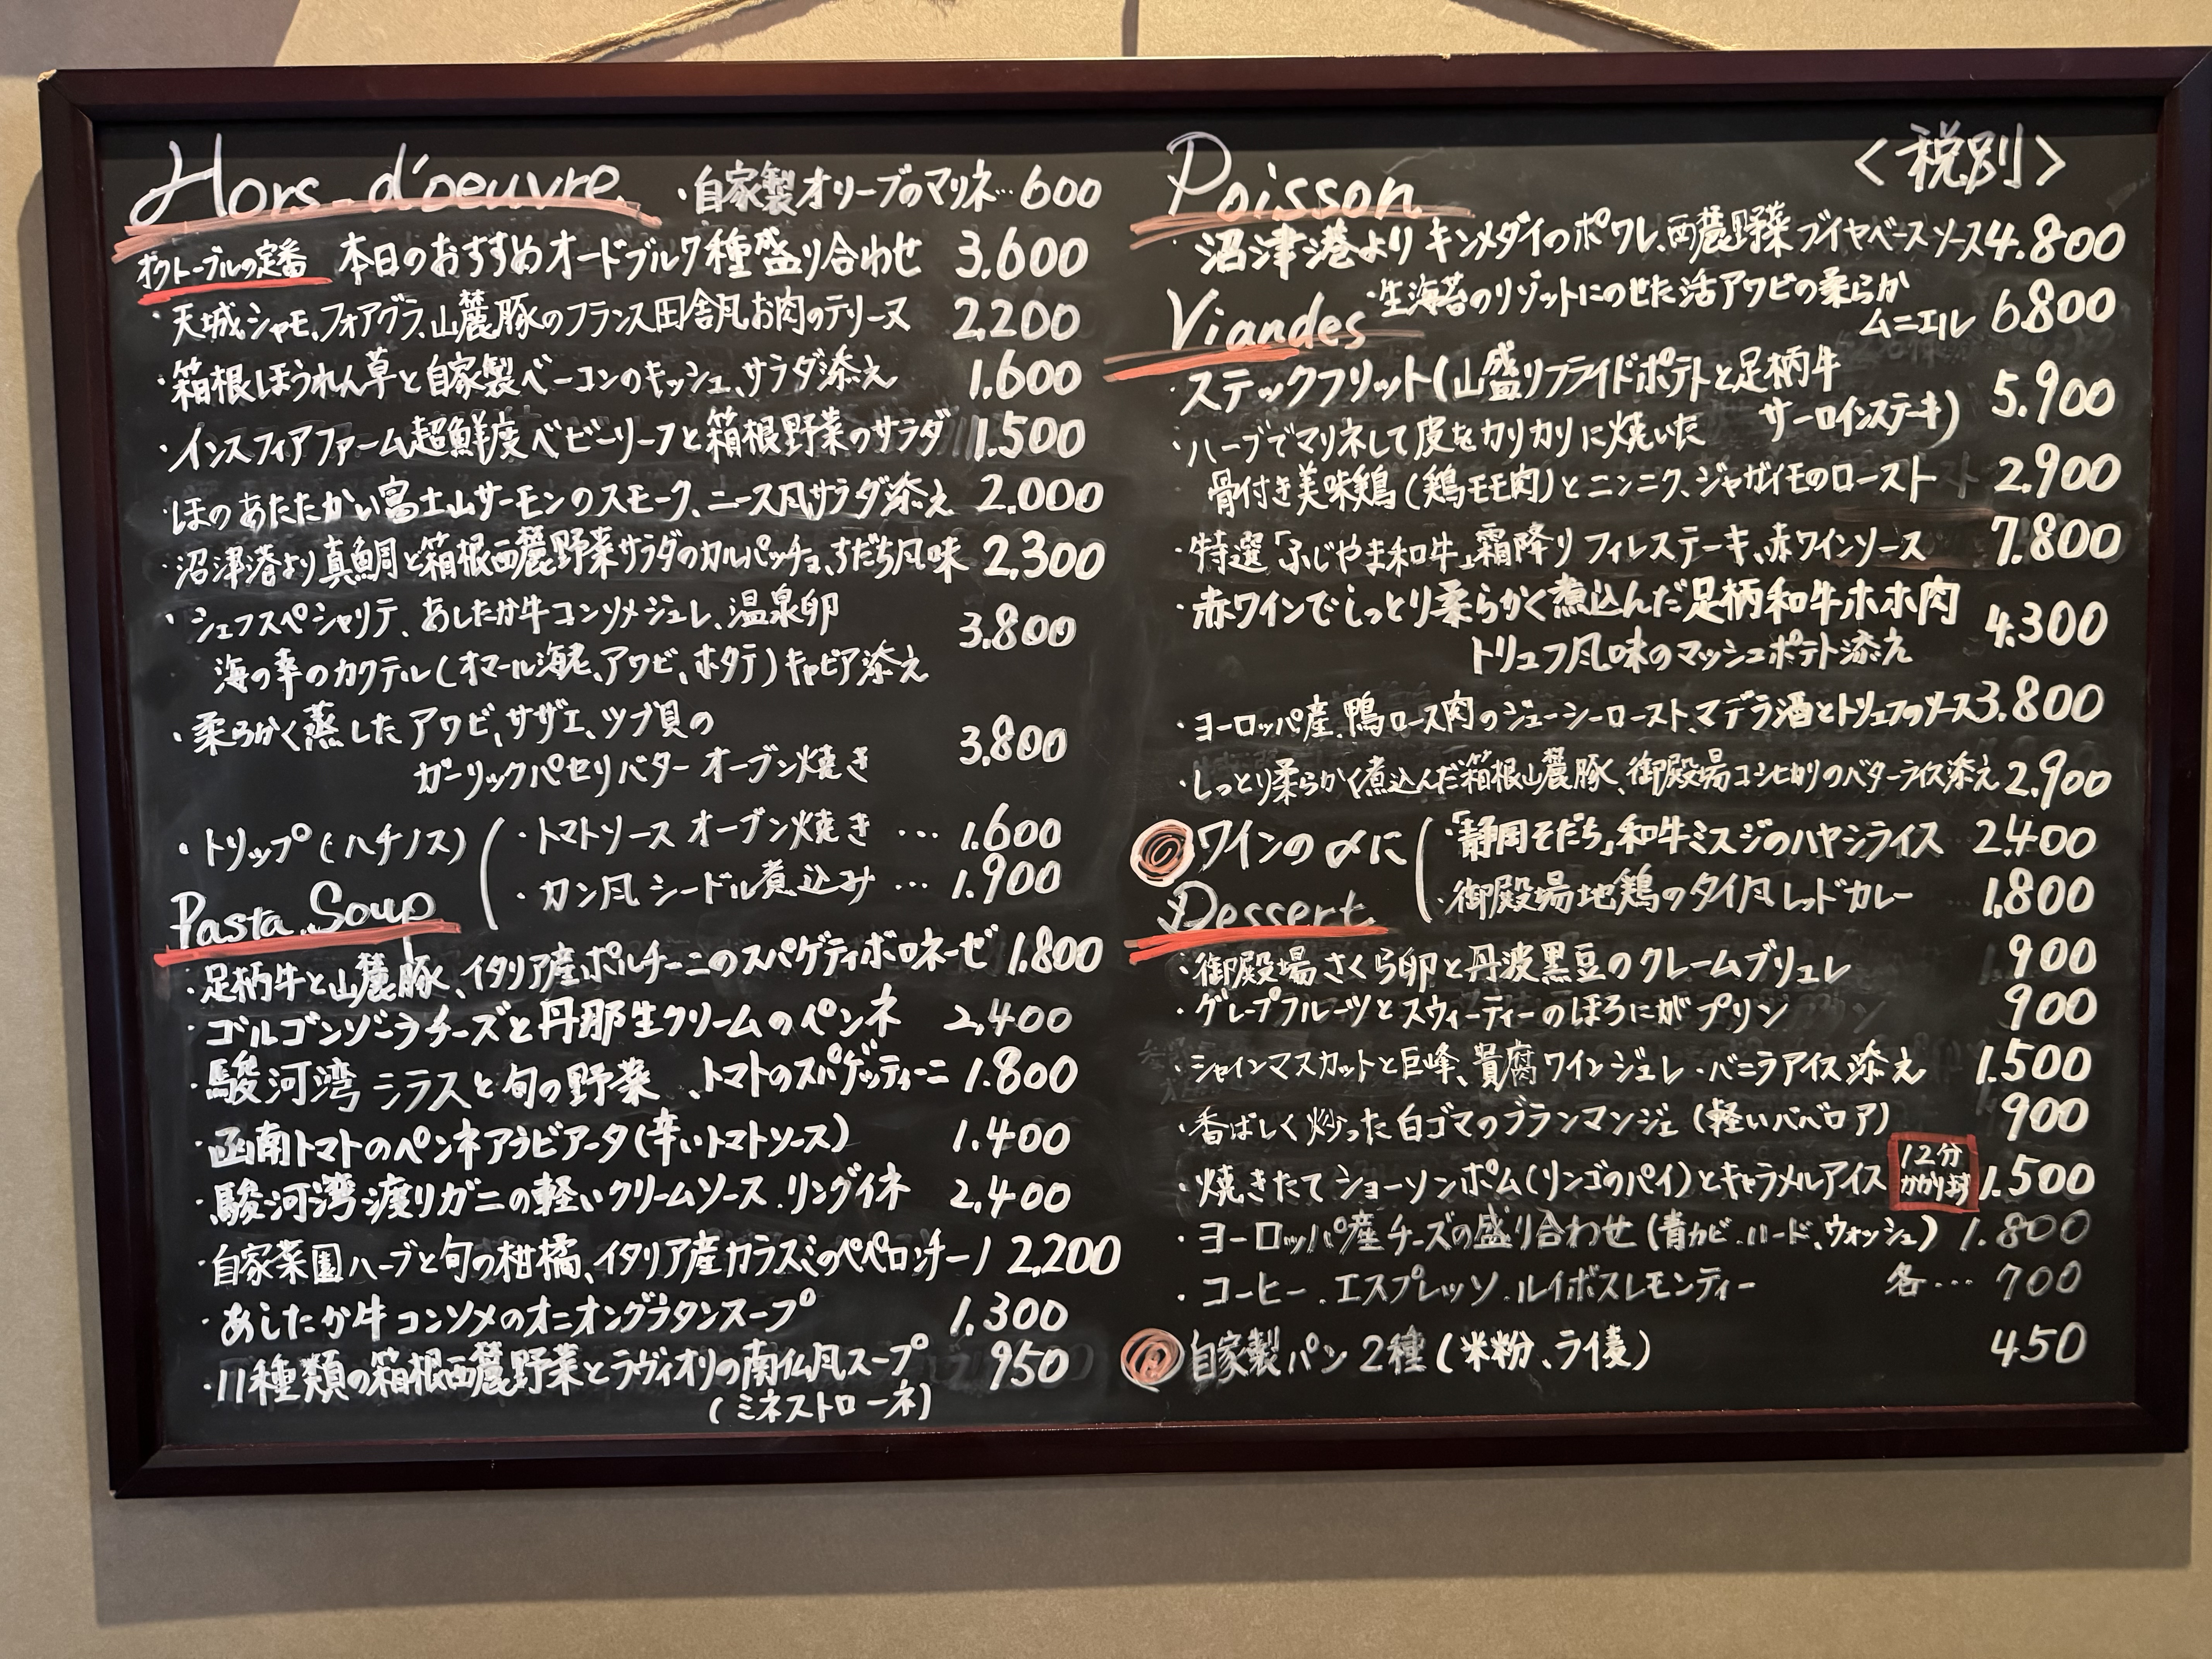 Hors-d'oeuvre ・自家製オリーブのマリネ… 600
オクトーブルの定番 本日のおすすめオードブル7種盛り合わせ 3.600
・天城シャモ、フォアグラ、山麓豚のフランス田舎風お肉のテリーヌ 2.200
・箱根ほうれん草と自家製ベーコンのキッシュ、サラダ添え 1.600
・インスフィアファーム超鮮度ベビーリーフと箱根野菜のサラダ 1.500
・ほのあたたかい富士山サーモンのスモーク、ニース風サラダ添え 2.000
・沼津港より真鯛と箱根西麓野菜サラダのカルパッチョ、すだち風味 2,300
・シェフスペシャリテ、あしたか牛コンソメジュレ、温泉卵
海の幸のカクテル(オマール海老、アワビ、ホタテ)キャビア添え 3.800
・柔らかく蒸したアワビ、サザエ、ツブ貝の
ガーリックパセリバター オーブン焼き 3.800
・トリップ(ハチノス)
・トマトソース オーブン焼き … 1.600
・カン風 シードル煮込み … 1.900
Pasta. Soup
・足柄牛と山麓豚、イタリア産ポルチーニのスパゲティボロネーゼ 1.800
・ゴルゴンゾーラチーズと丹那生クリームのペンネ 2,400
・駿河湾シラスと旬の野菜、トマトのスパゲッティーニ 1.800
・函南トマトのペンネアラビアータ(辛いトマトソース) 1.400
・駿河湾渡りガニの軽いクリームソース.リングイネ 2,400
・自家菜園ハーブと旬の柑橘、イタリア産カラスミのペペロンチーノ 2,200
・あしたか牛コンソメのオニオングラタンスープ 1.300
・11種類の箱根西麓野菜とラヴィオリの南仏風スープ 950
(ミネストローネ)
Poisson <税別>
・沼津港より キンメダイのポワレ、西麓野菜 ブイヤベースソース 4.800
・生海苔のリゾットにのせた活アワビの柔らか
ムニエル 6.800
Viandes
・ステックフリット(山盛りフライドポテトと足柄牛
サーロインステーキ) 5.900
・ハーブでマリネして皮をカリカリに焼いた
骨付き美味鶏(鶏モモ肉)とニンニク、ジャガイモのロースト 2.900
・特選「ふじやま和牛」霜降りフィレステーキ、赤ワインソース 7.800
・赤ワインでしっとり柔らかく煮込んだ足柄和牛ホホ肉
トリュフ風味のマッシュポテト添え 4.300
・ヨーロッパ産.鴨ロース肉のジューシーロースト、マデラ酒とトリュフのソース 3.800
・しっとり柔らかく煮込んだ箱根山麓豚、御殿場コシヒカリのバターライス添え 2.900
ワインの〆に
・「静岡そだち」和牛ミスジのハヤシライス 2.400
・御殿場地鶏のタイ風レッドカレー 1.800
Dessert
・御殿場さくら卵と丹波黒豆のクレームブリュレ 900
・グレープフルーツとスウィーティーのほろにがプリン 900
・シャインマスカットと巨峰、貴腐ワインジュレ・バニラアイス添え 1.500
・香ばしく炒った白ゴマのブランマンジェ(軽いババロア) 900
・焼きたてショーソンポム(リンゴのパイ)とキャラメルアイス 12分かかります 1.500
・ヨーロッパ産チーズの盛り合わせ(青カビ.ハード、ウォッシュ) 1.800
・コーヒー.エスプレッソ.ルイボスレモンティー 各… 700
自家製パン2種(米粉、ライ麦) 450